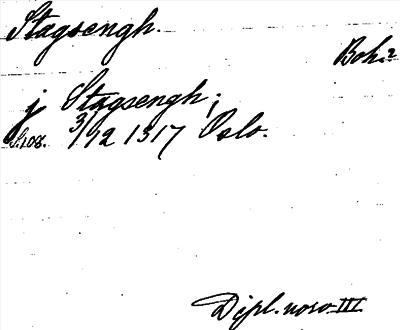 Stagsengh.
Boh.
j Stagsengh;
S. 108. 3/12 1317 Oslo.
Dipl. norv. III.